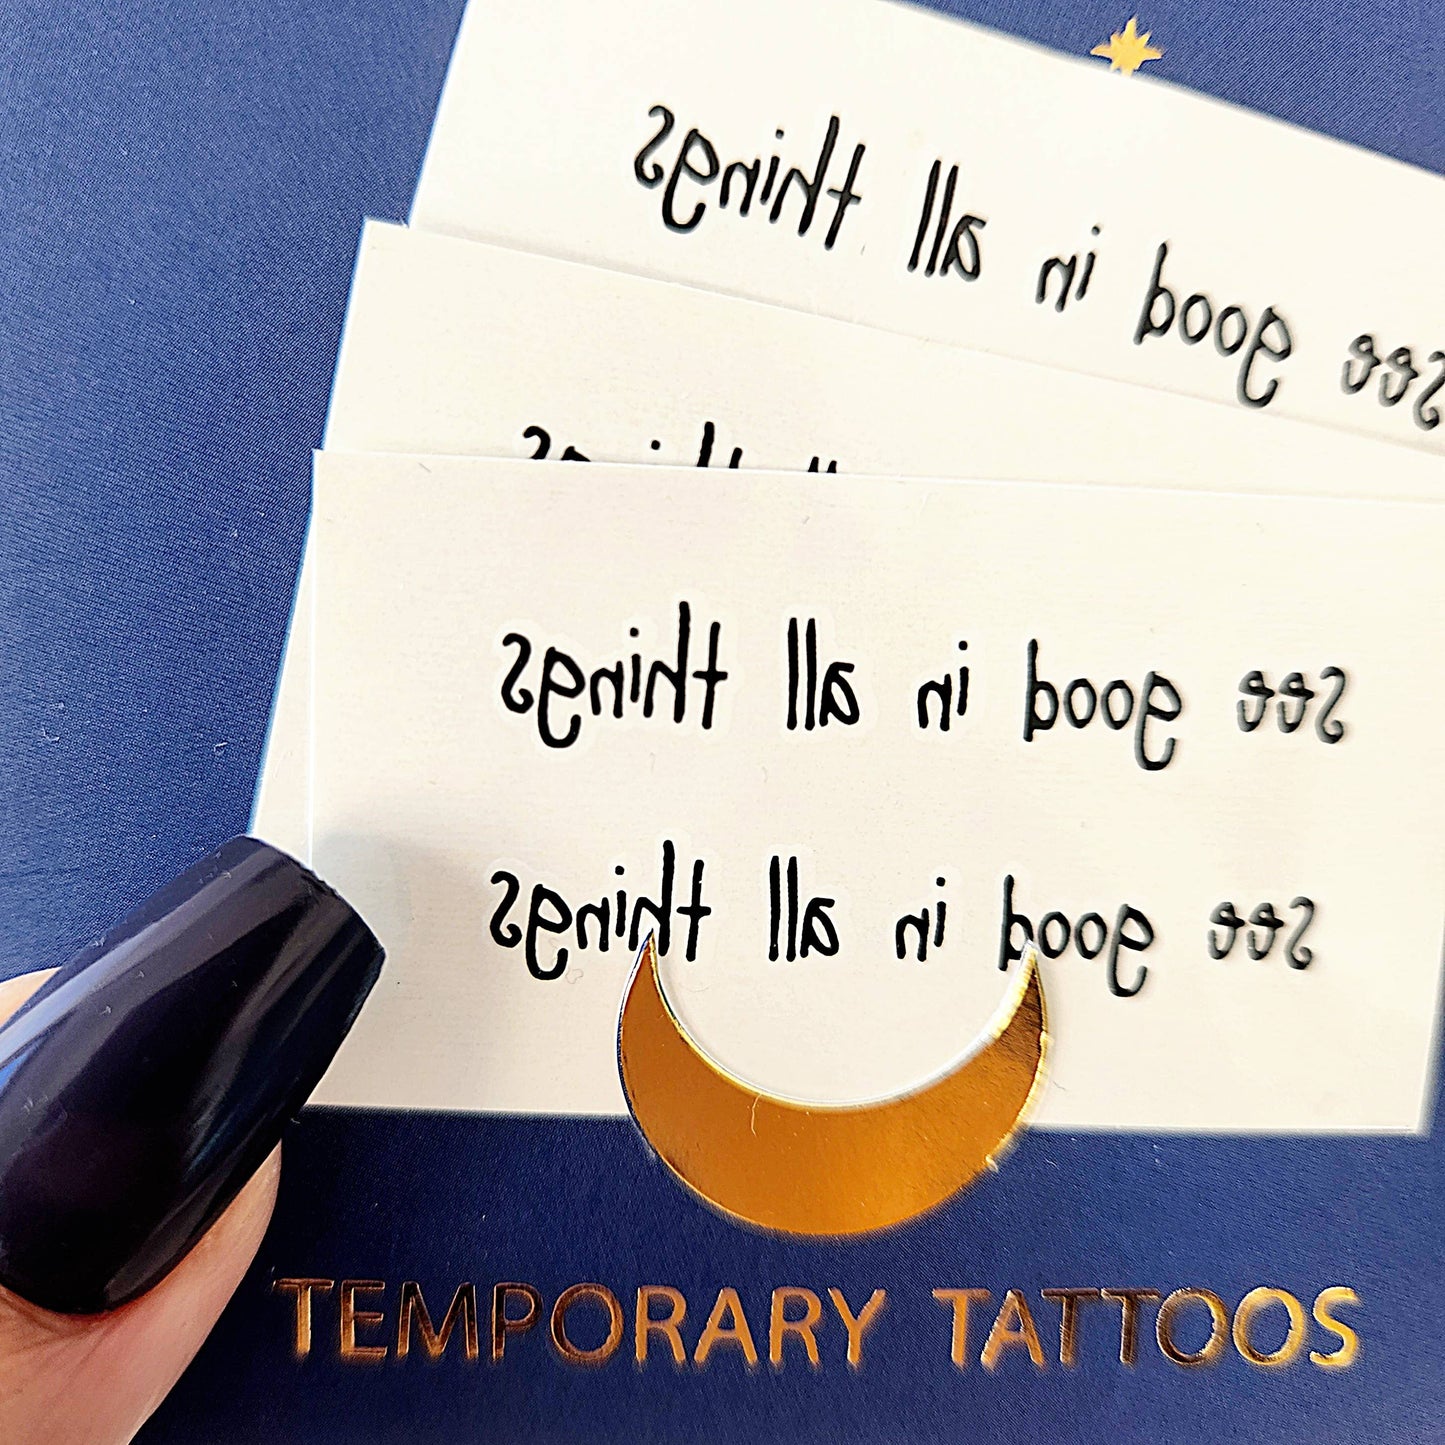 see good in all things
see good in all things
see good in all things
TEMPORARY TATTOOS